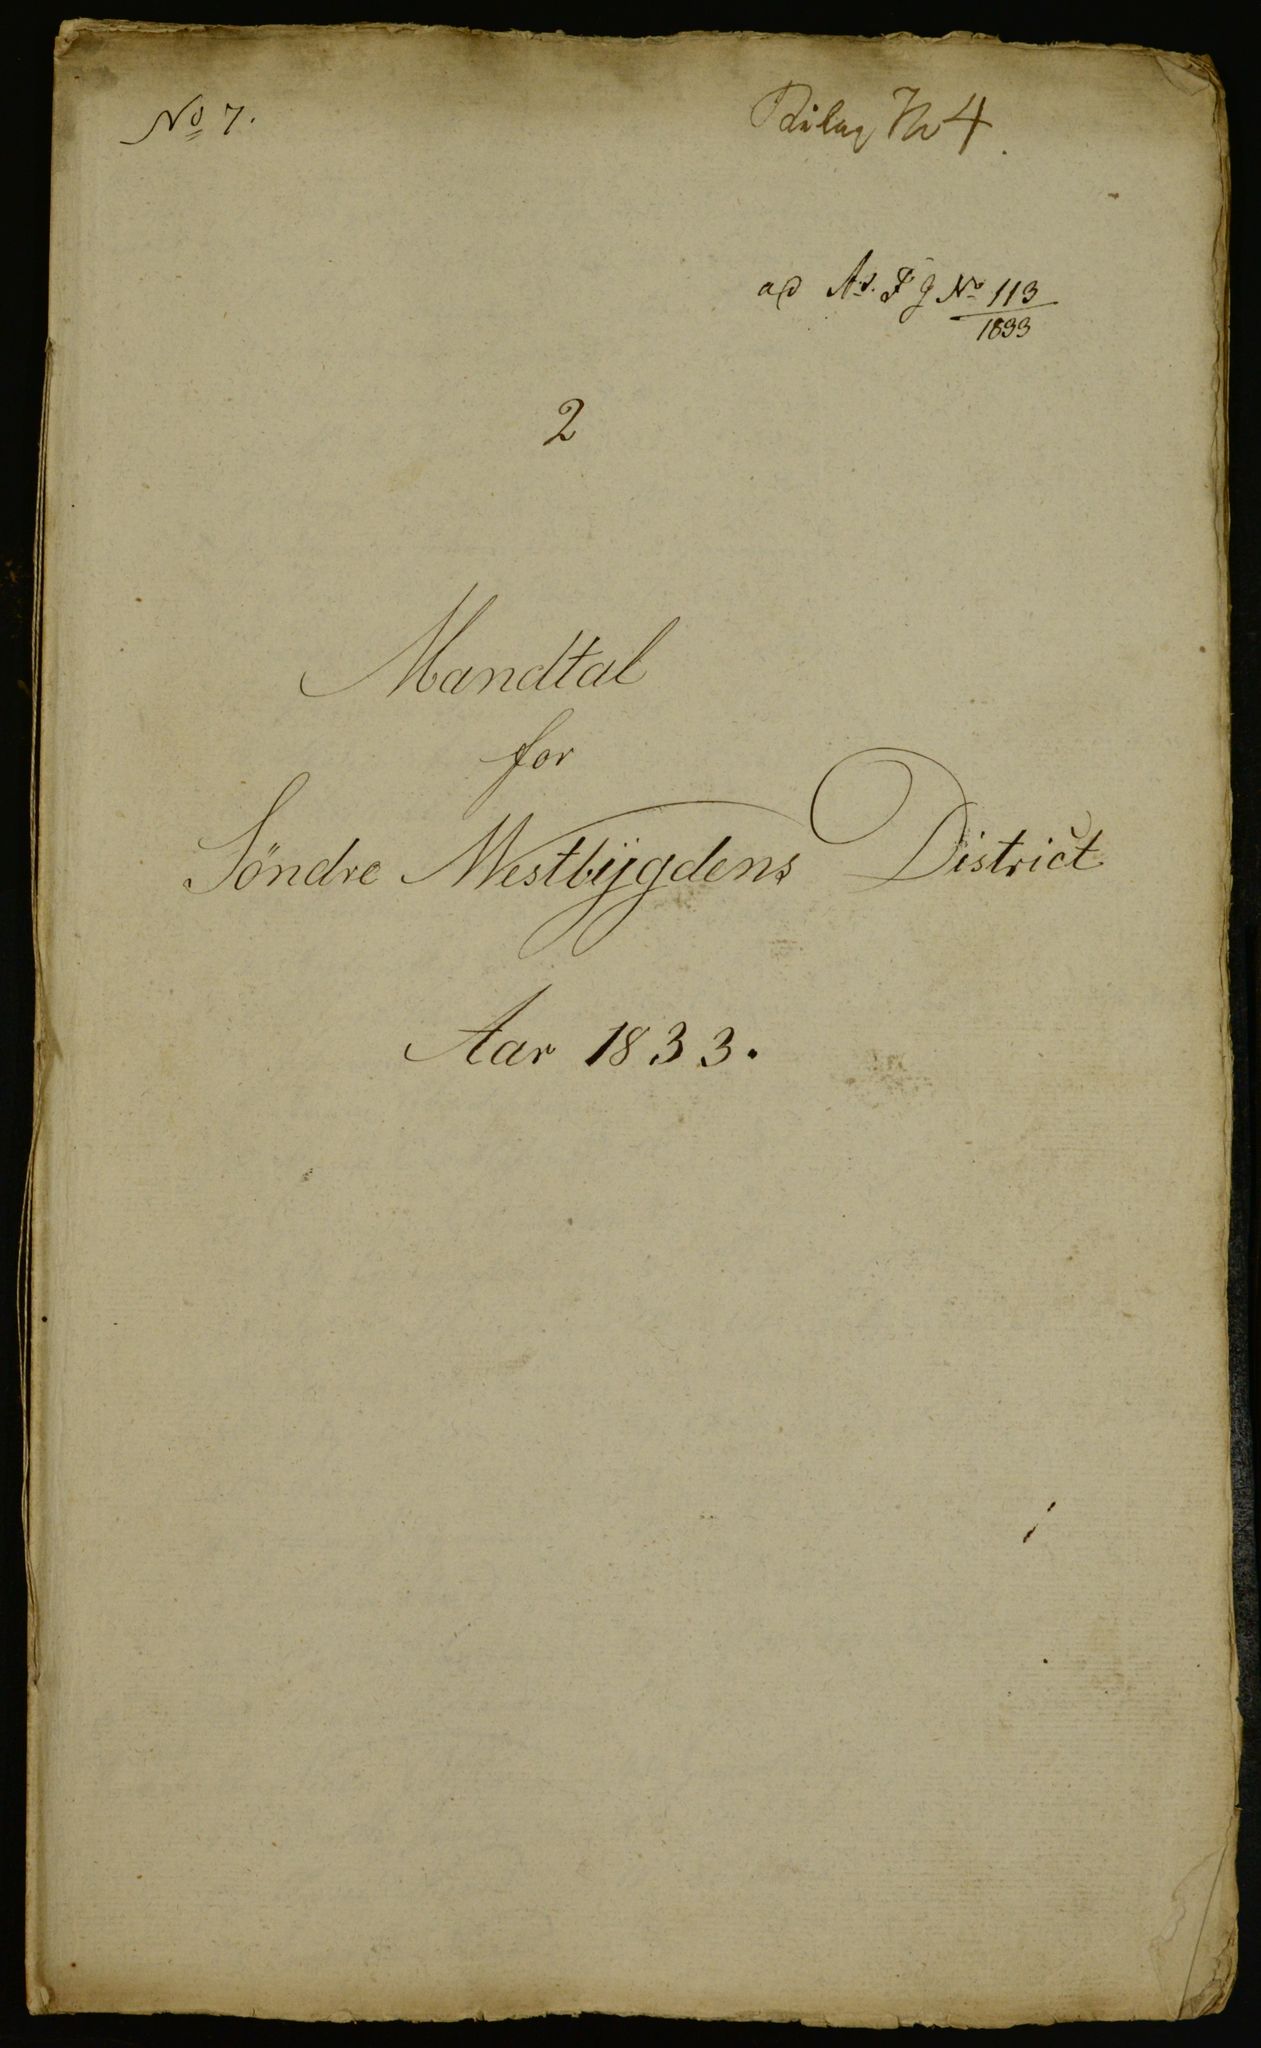 No 7.
Bilag No 4
ad As. F J No 113
1833
2
Mandtal
for
Söndre Westbÿgdens District
Aar 1833.